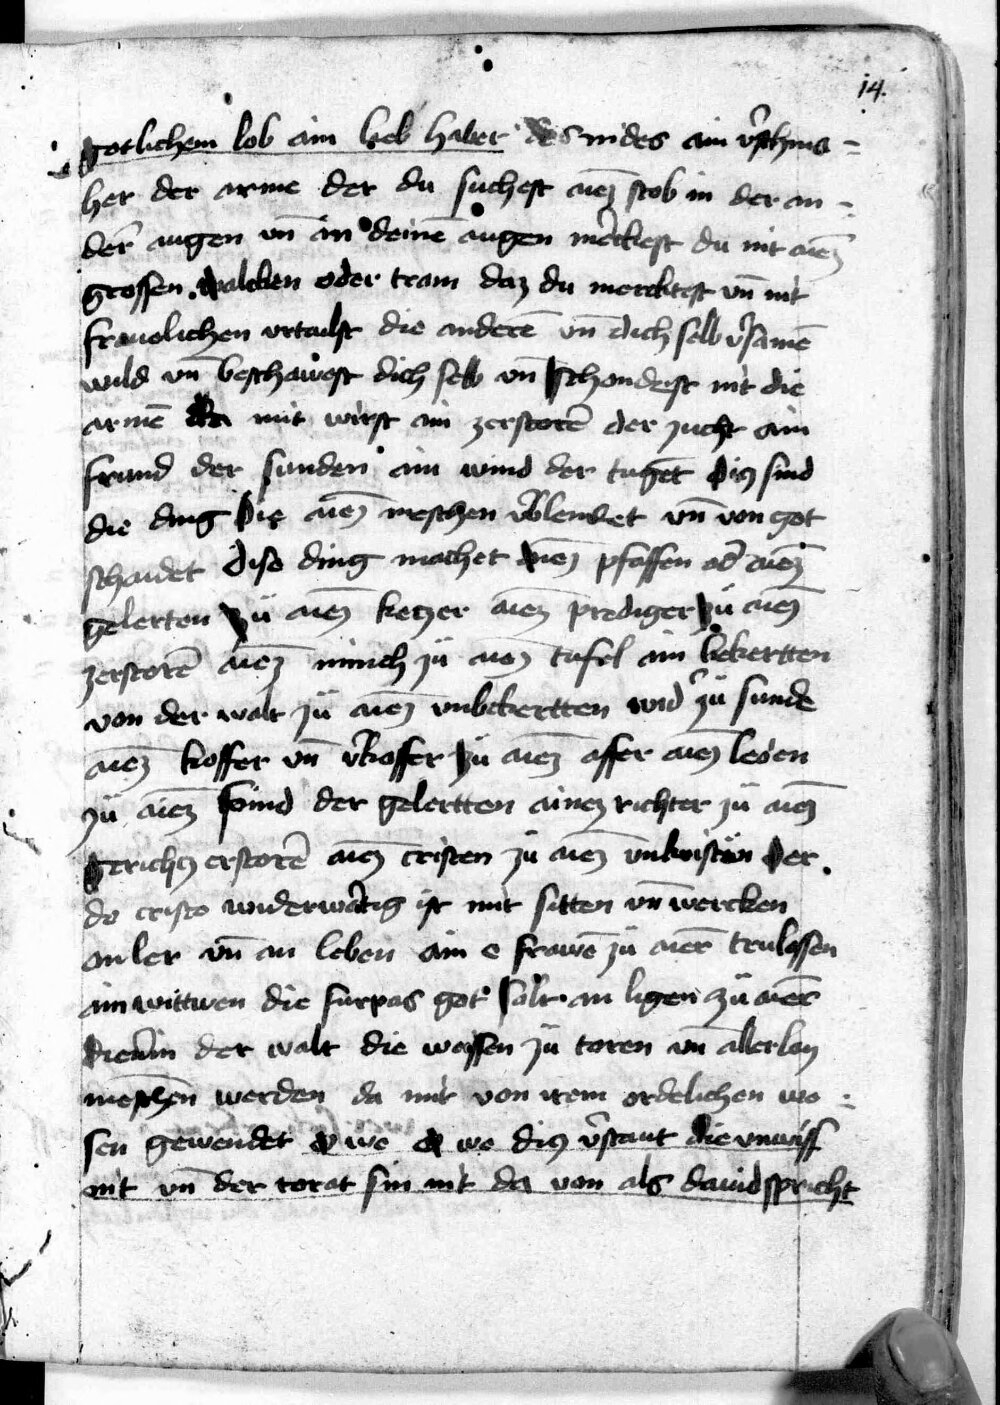 14.
gotlichem lob ain lieb haber des nides ain v̄schma=
her der arme der du suchest aiez stob in der an=
der̄ augen vn̄ in deinē augen mērckest du nit aiēz
grossen walcken oder tram daz du mercktest vn̄ nit
frauolichen vrtailst die anderē vn̄ dich selb v̄samē
wild vn̄ beschawest dich selb vn̄ schondest nit die
armē da mit wirst ain zerstorē der zucht ain
frund der sunden ain wind der tugēt diß sind
die ding die aiēz meschen v̄blendet vn̄ von got
schaidet dise ding machet aiēz pfaffen od̄ aiēz
gelerten zü aiēz ketzer aiēz prediger zü aiēz
zerstorē aiēz münch zü aiēz tüfel ain bekertten
von der walt zü aiēz vnbekertten wid̄ zü sunde
aiēz koffer vn̄ v̄koffer zü aiēz affer aiēz leien
zü aiēz find der gelertten ainez richter zü aiēz
gerichtz erstorē aiēz cristen zü aiēz vnkristēn der
do cristo widerwärtig ist mit sitten vn̄ wercken
an ler vn̄ an leben ain e frawē zü aier̄ trulossen
ain wittwen die furpas got solt an ligen zü aier̄
dienērin der walt die wayssen zü toren vn̄ allerlay
meschēn werden da mit von irem ordelichen we=
sen gewendet O we O we diß v̄staut die vnwiss
nit vn̄ der torat sin nit da von als dauid spricht